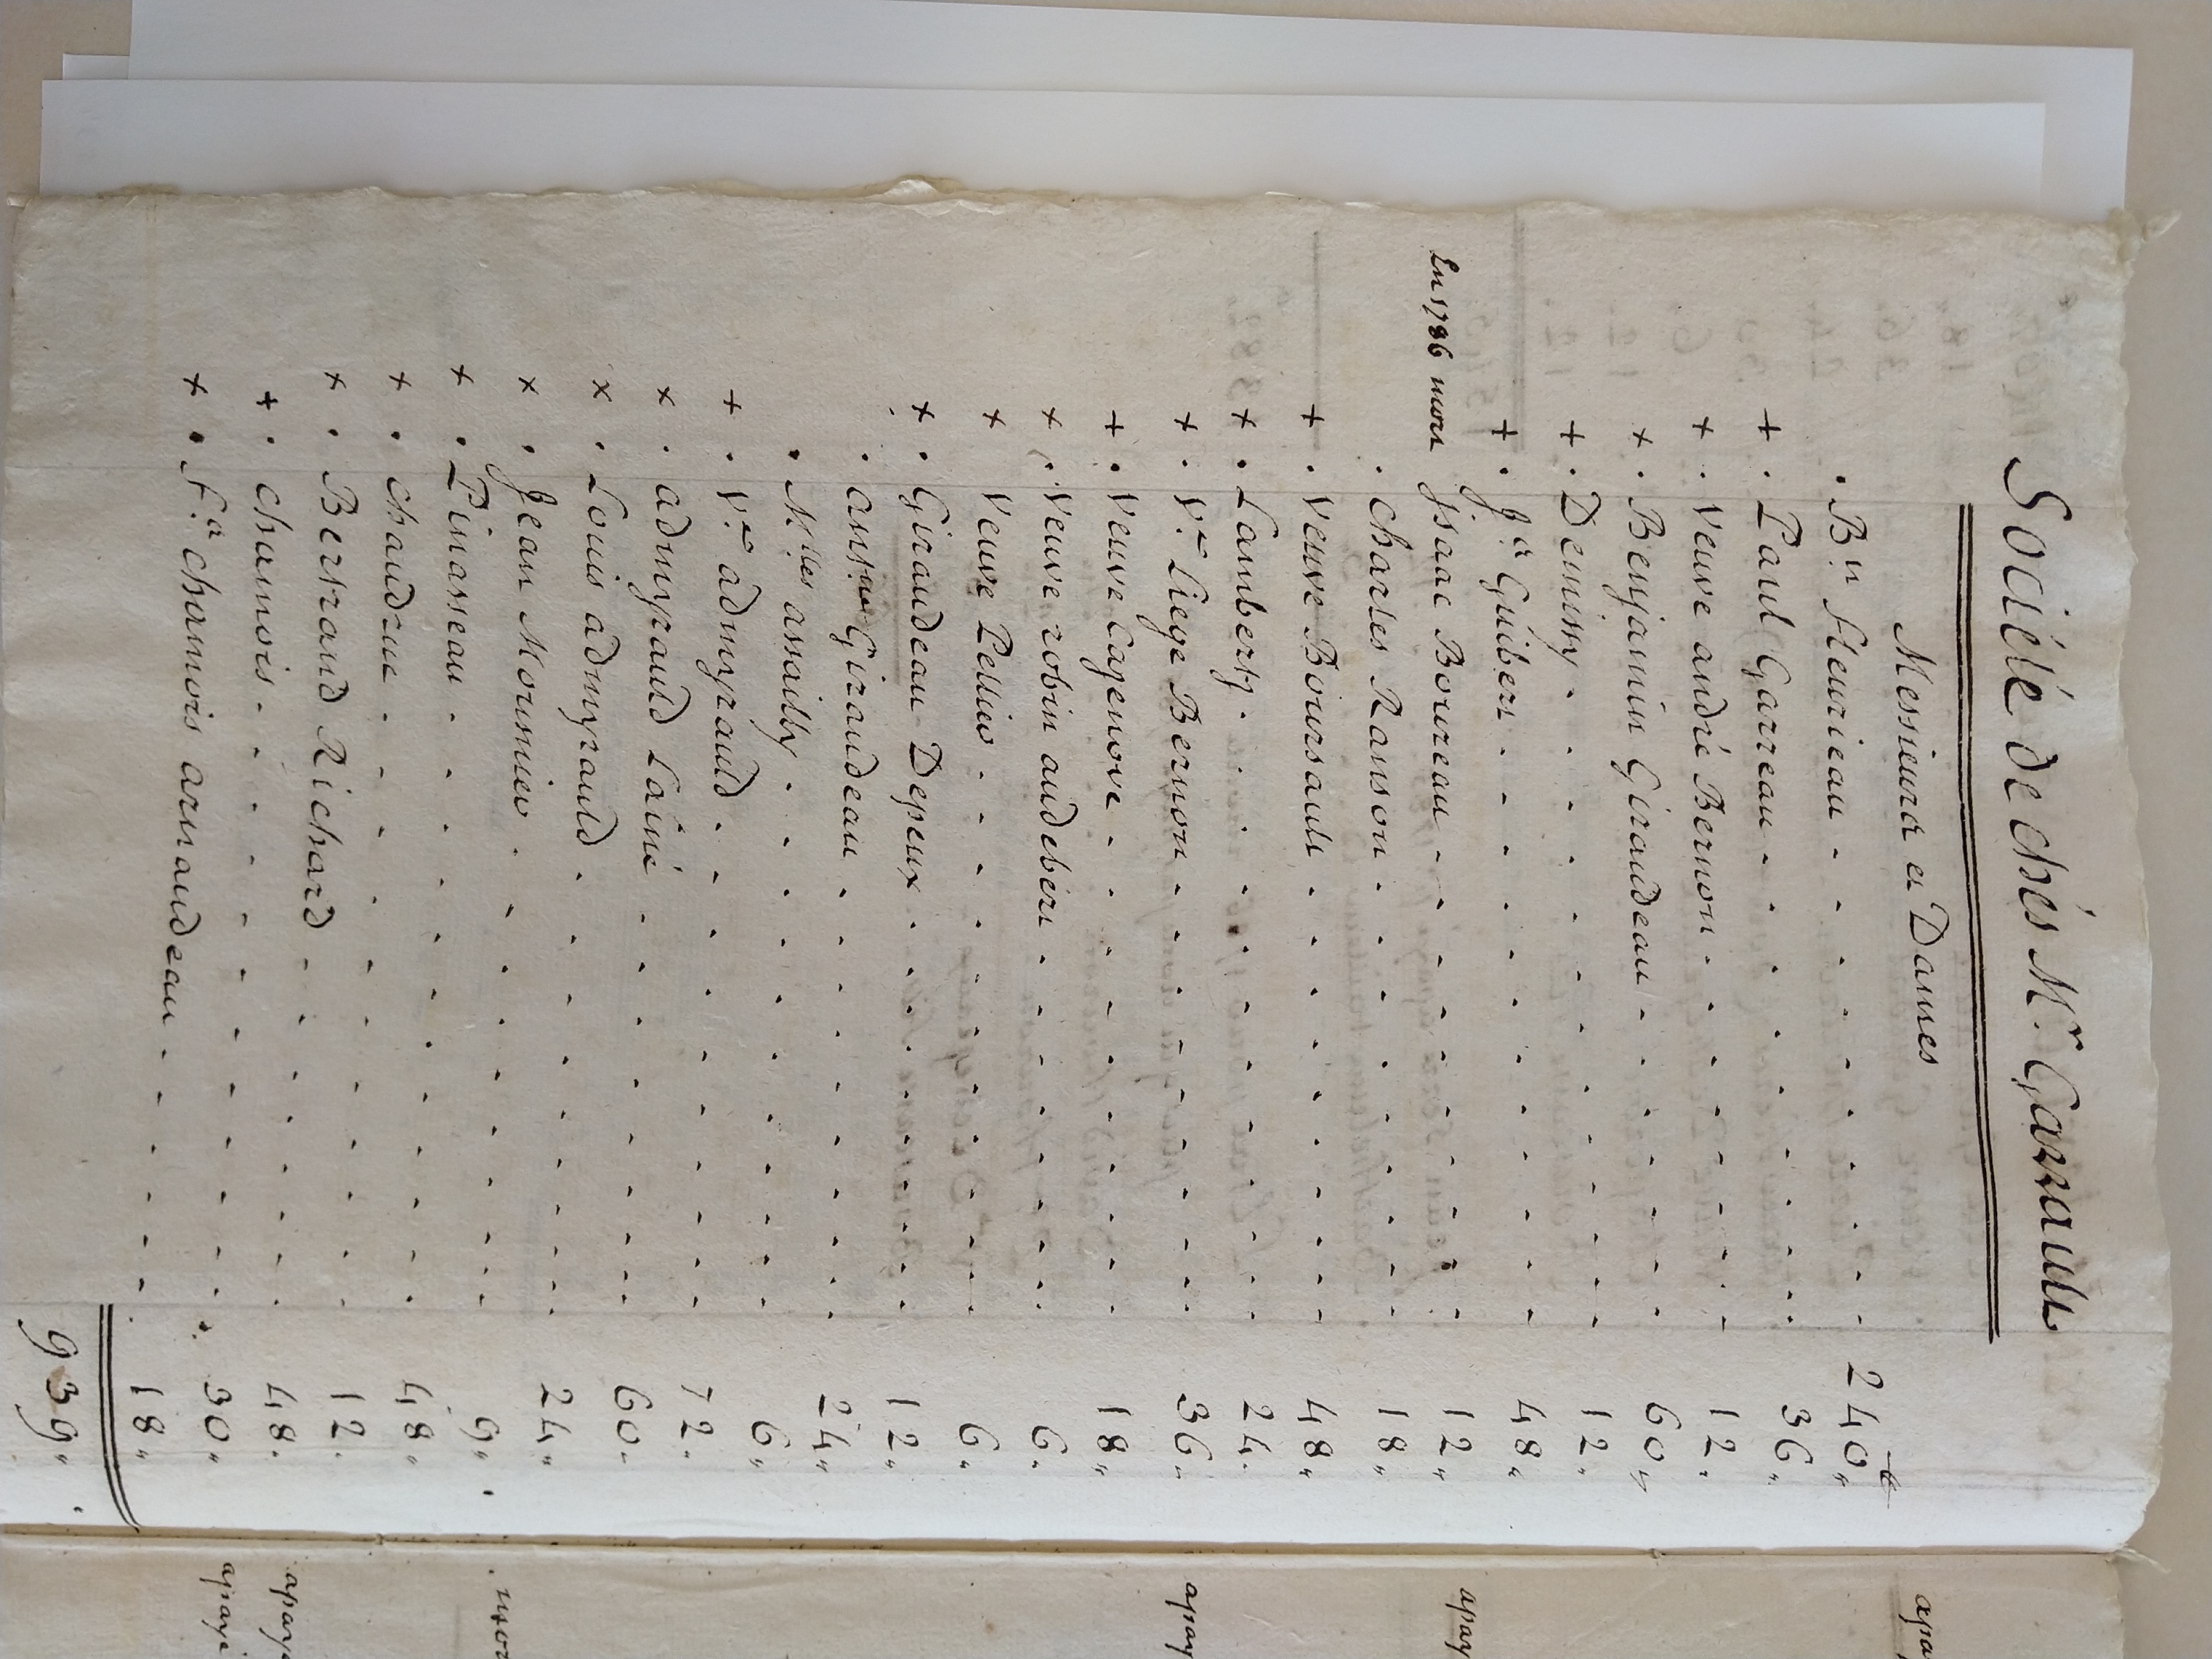 Société de chés Mr. Garrault
Messieurs et Dames
. Bn. fleurieau 240 "
+ . Paul Garreau 36 "
+ . Veuve andré Bernon 12 "
+ . Benjamin Giraudeau 60 "
+ . Demissy 12 "
+ . Jn. Guibert 48 "
En 1786 mort Isaac Boureau 12 "
. Charles Ranson 18 "
+ . Veuve Boursault 48 "
+ . Lambertz 24 "
+ . Ve. Liege Bernon 36 "
+ . Veuve Cazenove 18 "
+ . Veuve robin audebert 6 "
+ Veuve Pellier 6 "
+ . Giraudeau Depeux 12 "
. antne. Giraudeau 24 "
. Mlles assailly 6 "
+ . Ve. admyrauld 72 "
+ . admyrauld Lainé 60 "
+ . Louis admyrauld 24 "
+ . Jean Mounier 9 "
+ . Pinasseau 48 "
+ . chaudrue 12 "
+ . Bertrand Richard 48 "
+ . chamois 30 "
+ . Fs. chamois arnaudeau 18 "
939 "
apay
apay
apay
mor
apayé
apayé